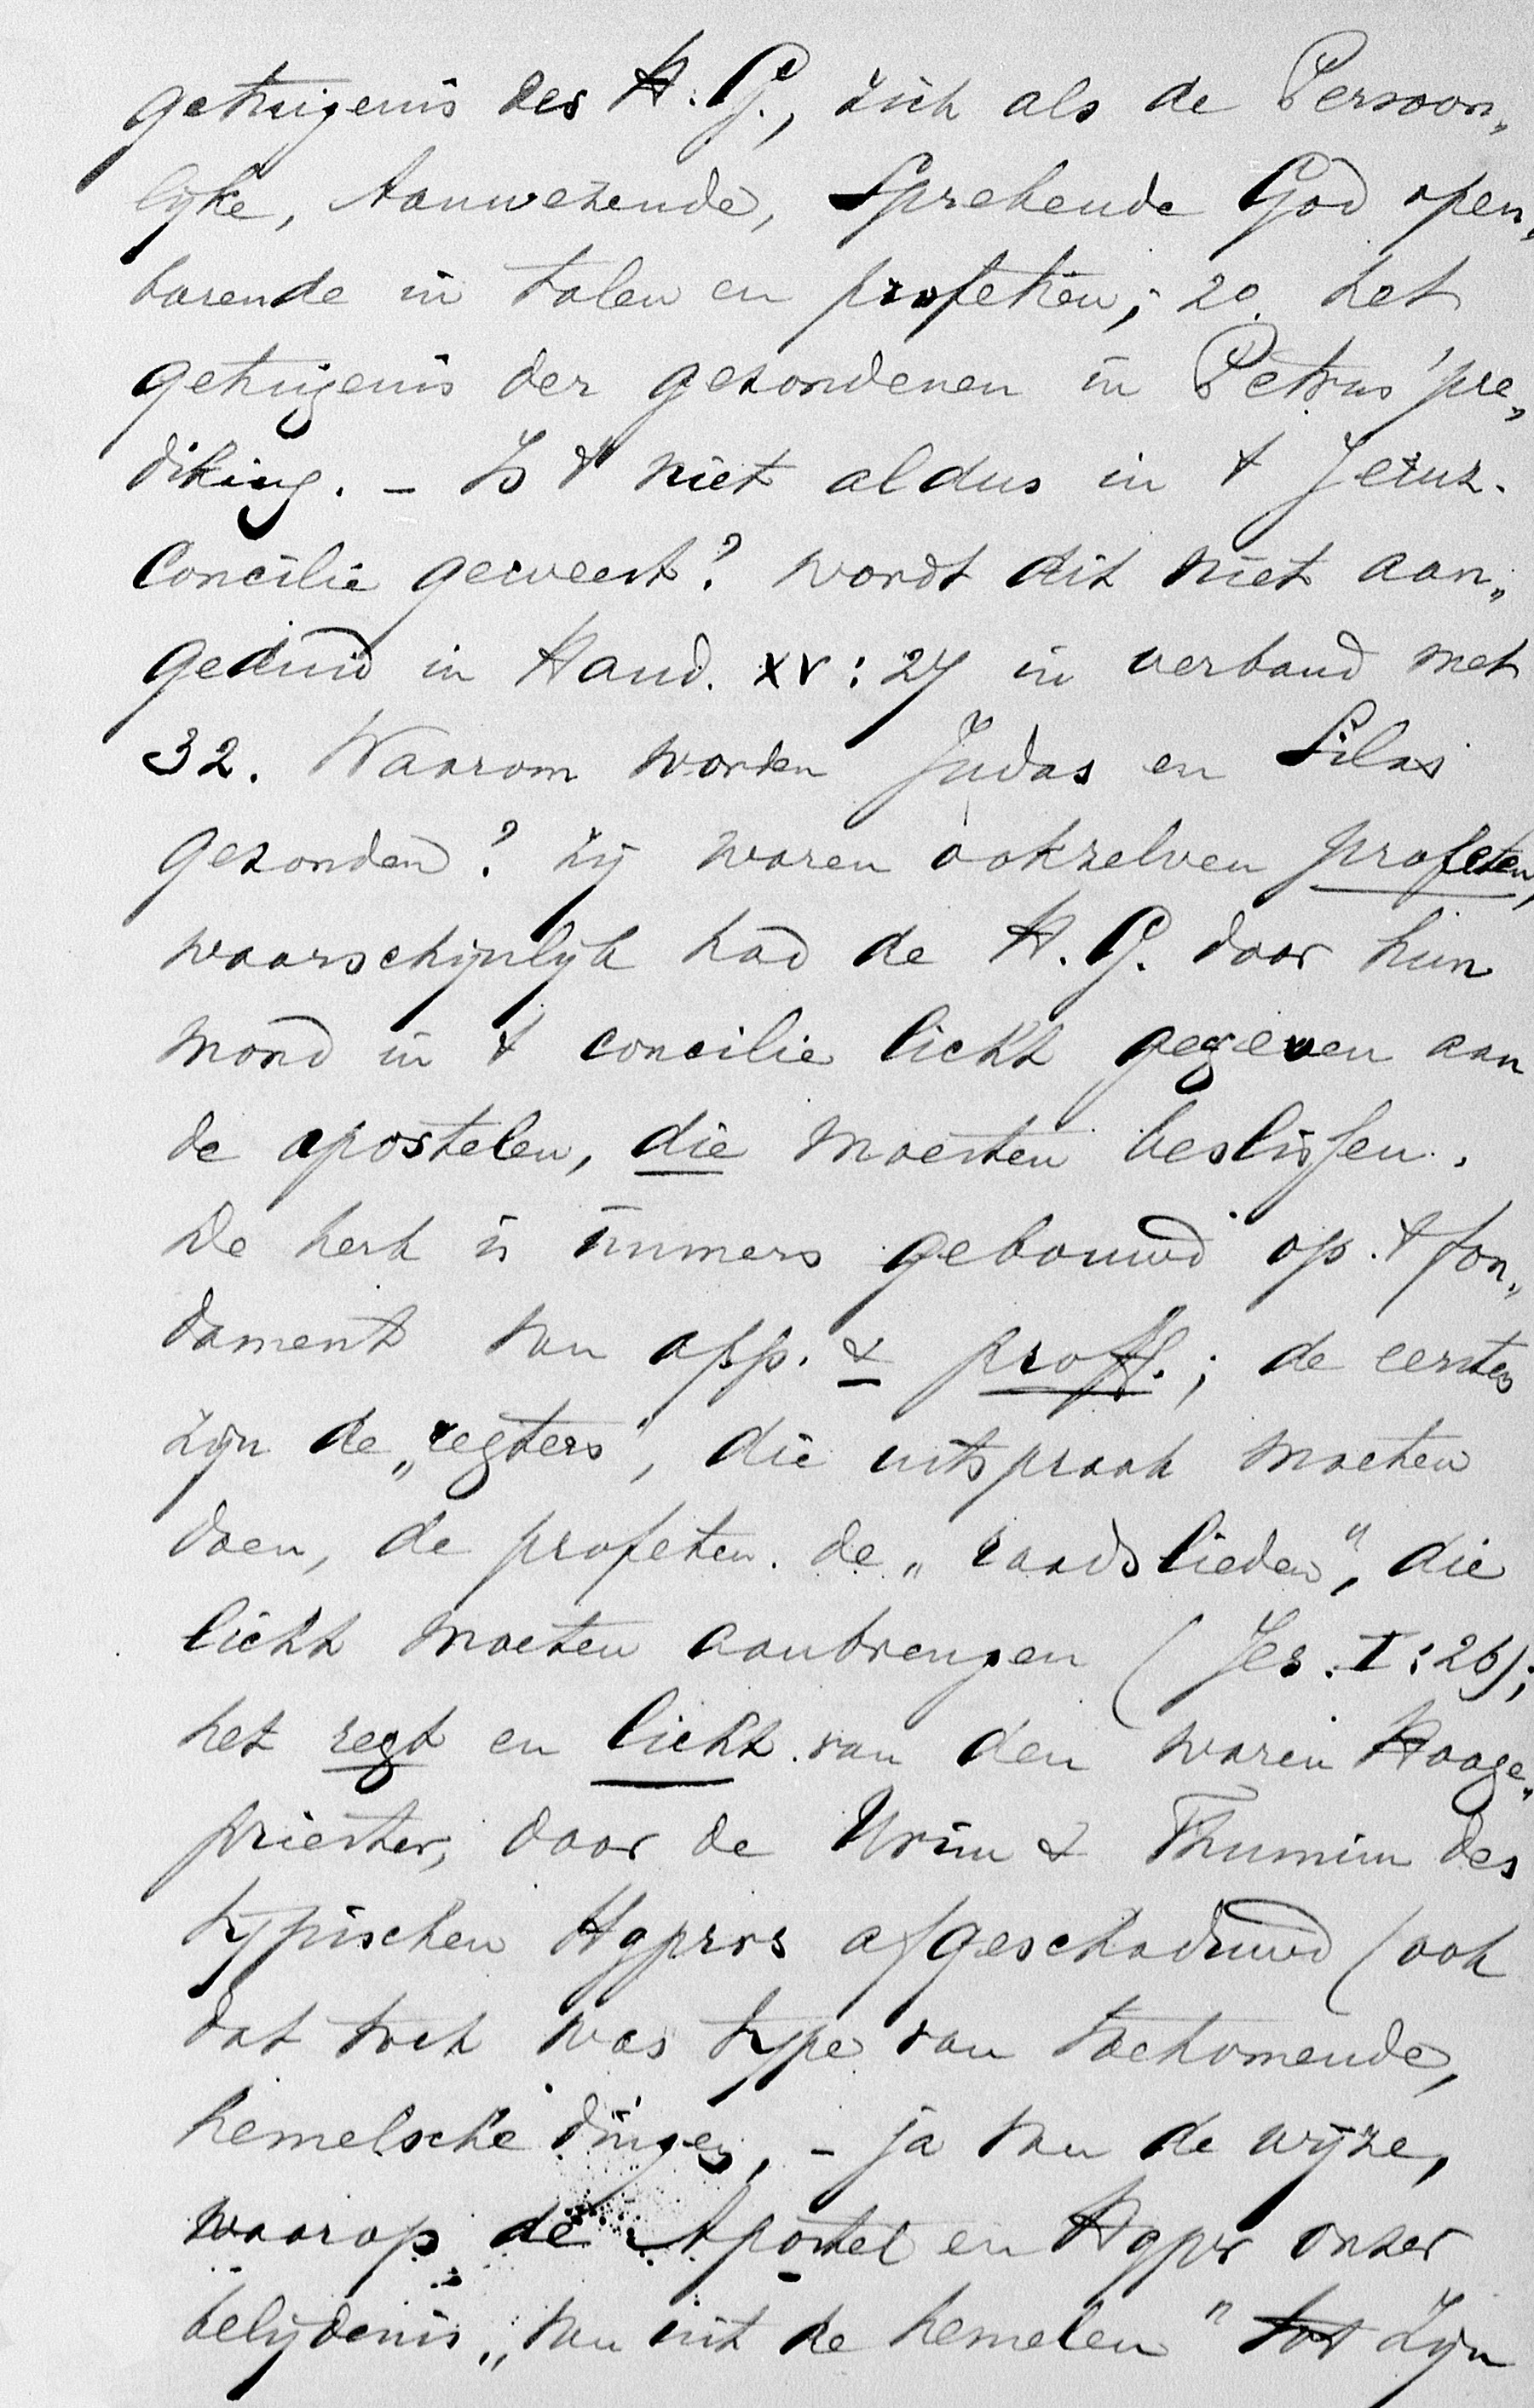 getuigenis des H. G., zich als de Persoon„
lijke, Aanwezende, Sprekende God open„
barende in talen en profetiën; 2o. het
getuigenis der gezondenen in Petrus' pre„
diking. – Is 't niet aldus in 't Jeruz.
Concilie geweest? wordt dit niet aan„
geduid in Hand. XV: 27 in verband met
32. Waarom worden Judas en Silas
gezonden? zij waren ookzelven profeten,
waarschijnlijk had de H. G. door hun
mond in 't concilie licht gegeven aan
de apostelen, die moesten beslissen.
De kerk is immers gebouwd op 't fon„
dament van app. & proff.; de eersten
zijn de „regters", die uitspraak moeten
doen, de profeten de „raadslieden", die
licht moeten aanbrengen (Jes. I: 26);
het regt en licht van den waren Hooge„
priester, door de Urim & Thumim des
typischen Hgprs afgeschaduwd (ook
dat toch was type van toekomende,
hemelsche dingen, – ja van de wijze,
waarop de Apostel en Hgpr onzer
belijdenis „van uit de hemelen" tot Zijn